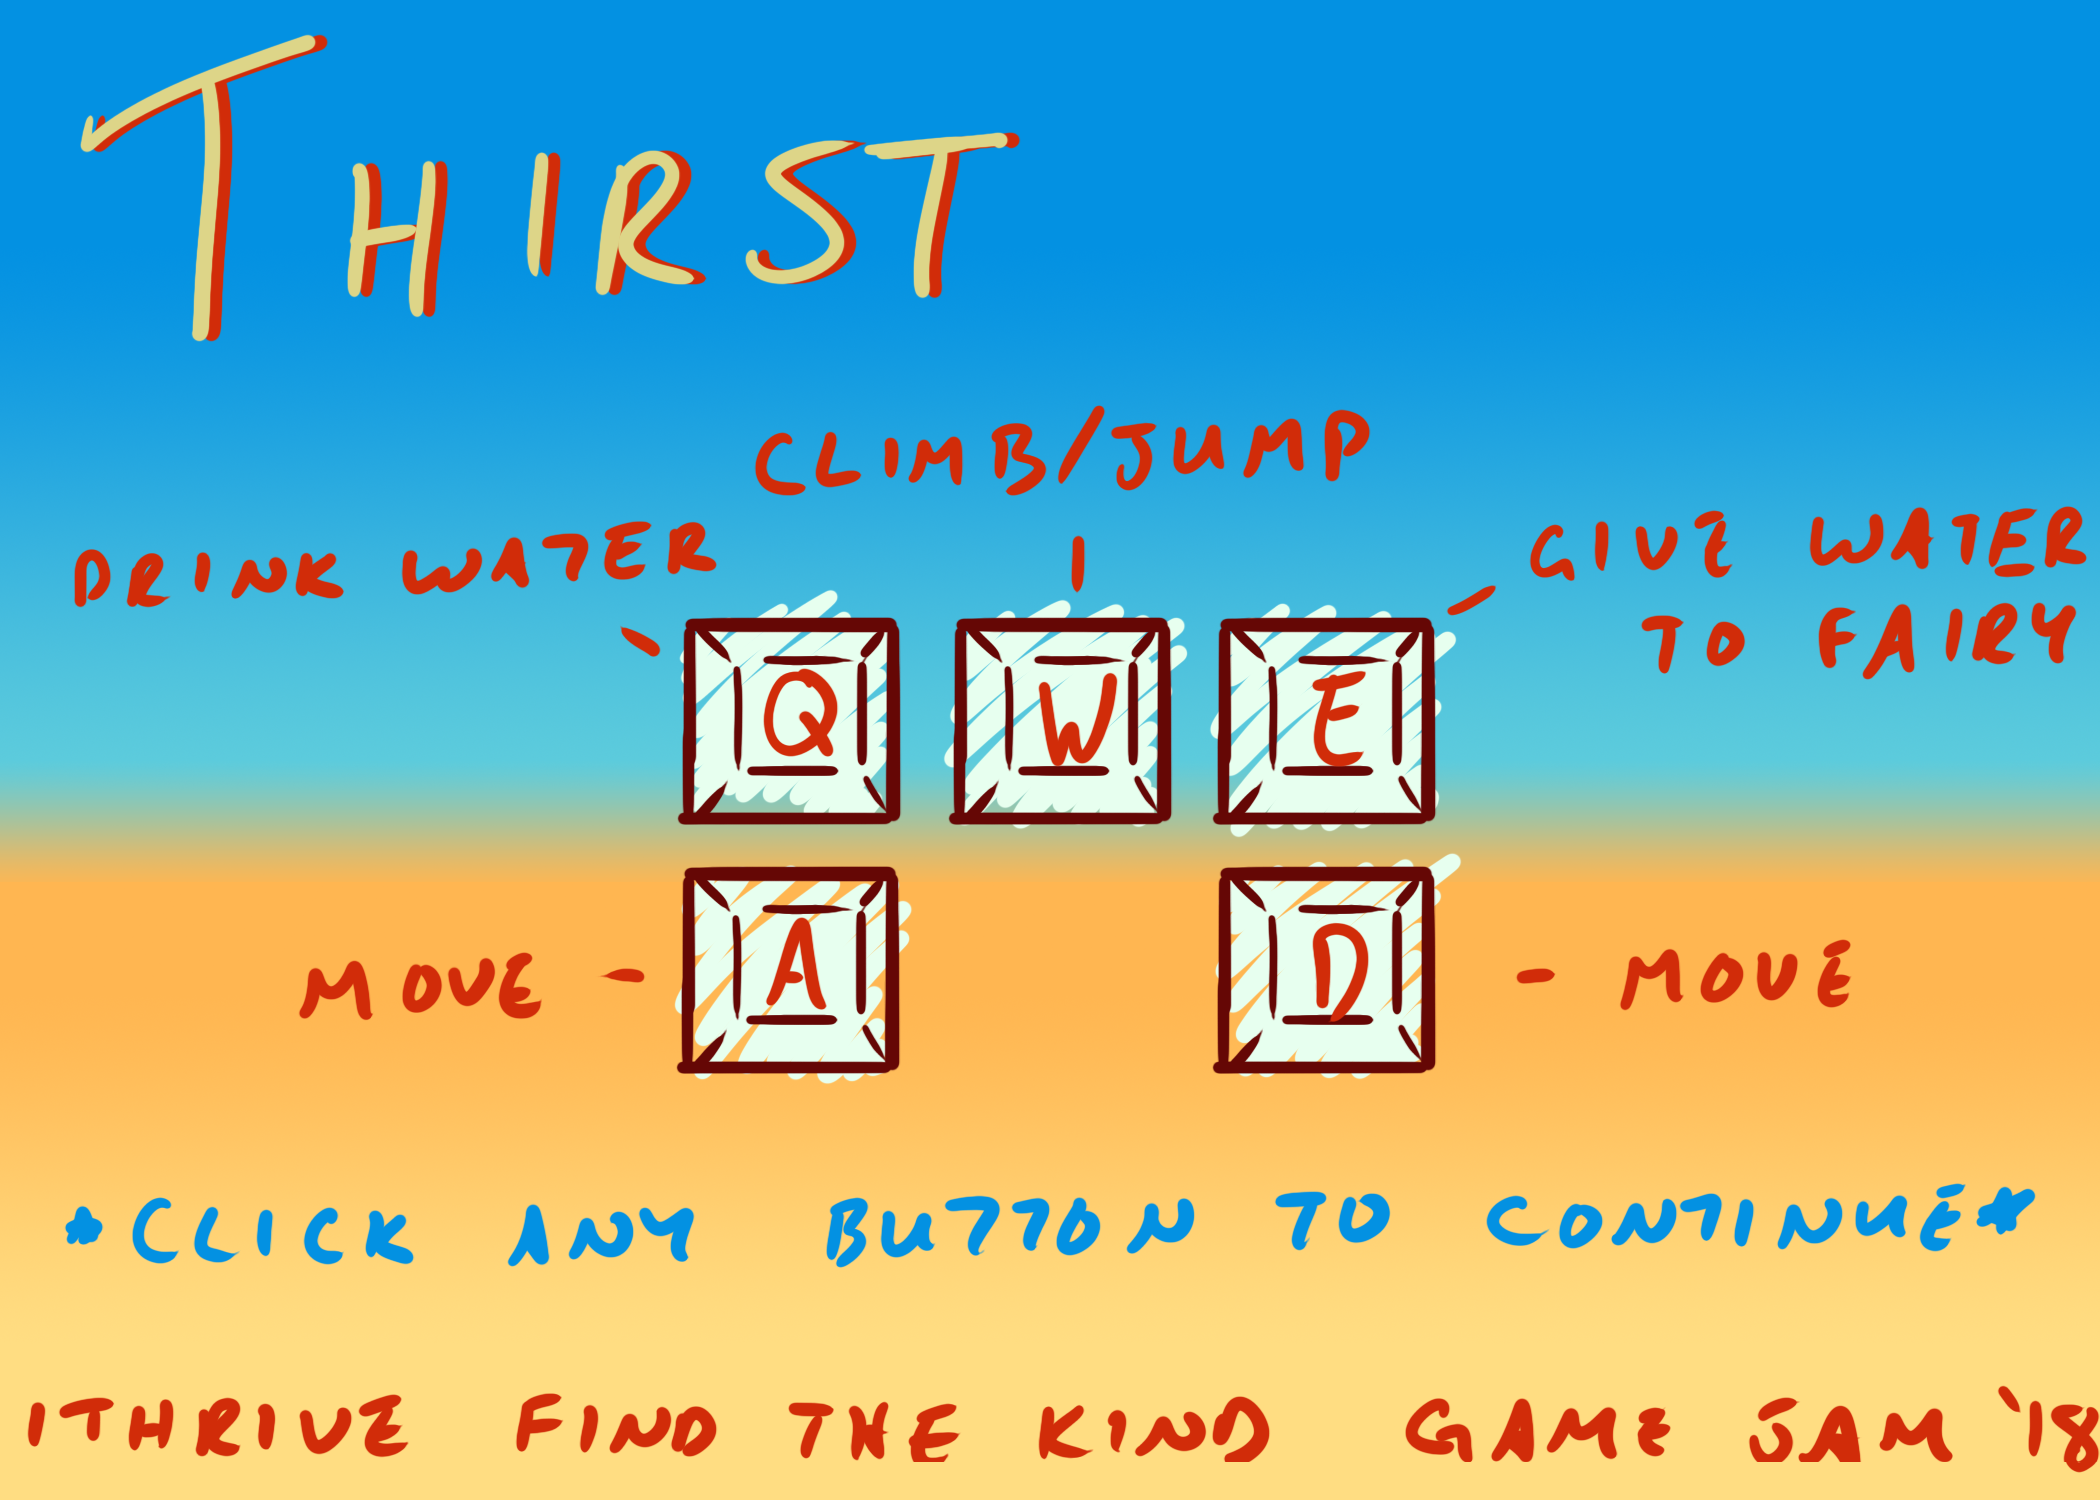 THIRST
CLIMB/JUMP
DRINK WATER
GIVE WATER
TO FAIRY
Q W E
MOVE - A D - MOVE
*CLICK ANY BUTTON TO CONTINUE*
ITHRIVE FIND THE KIND GAME JAM '18